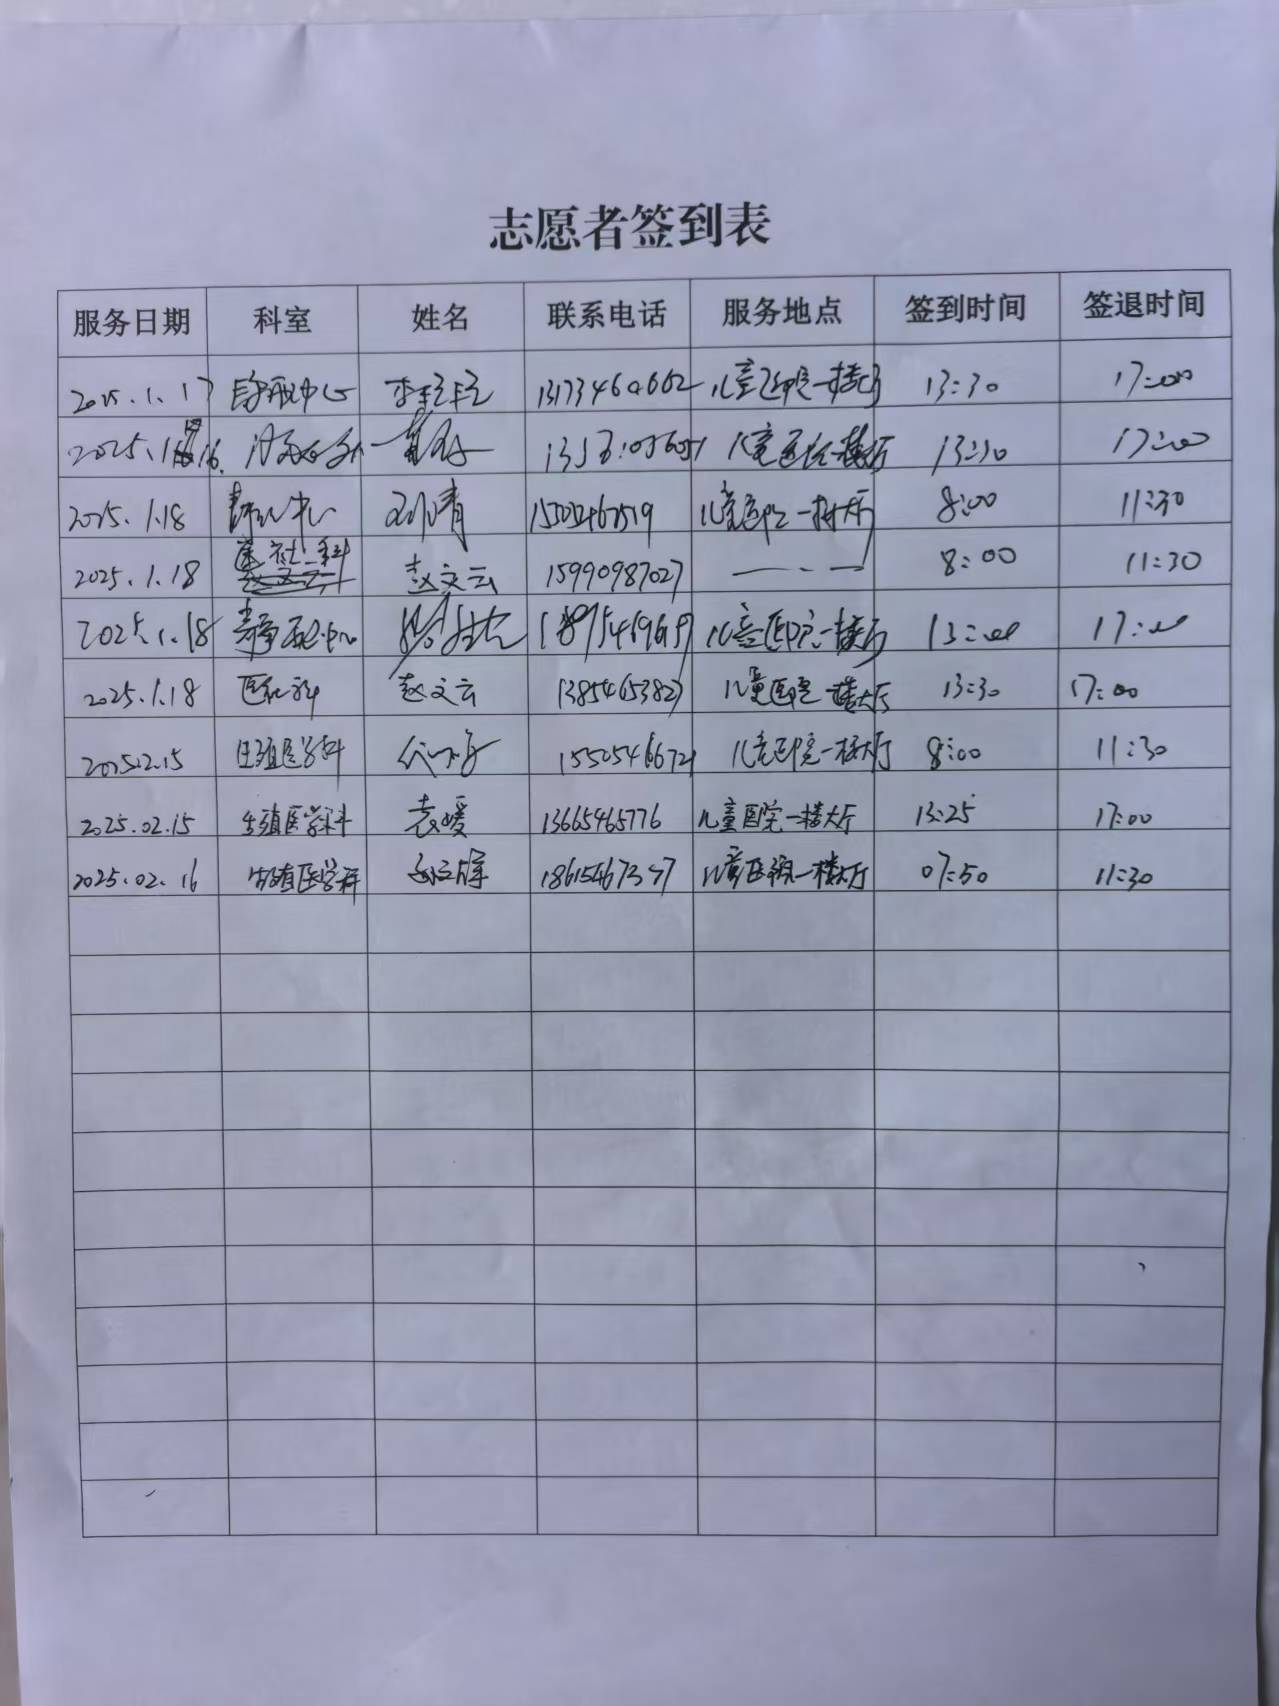 志愿者签到表
服务日期 科室 姓名 联系电话 服务地点 签到时间 签退时间
2025.1.17 静配中心 13173460662 儿童医院一楼大厅 13:30 17:00
2025.1.16. 儿童医院一楼大厅 13:30 17:00
2025.1.18 静配中心 刘清 儿童医院一楼大厅 8:00 11:30
2025.1.18 赵文云 15990987027 8:00 11:30
2025.1.18 静配中心 儿童医院一楼大厅 13:00 17:00
2025.1.18 赵文云 13854653827 儿童医院一楼大厅 13:30 17:00
2025.2.15 生殖医学科 15505466721 儿童医院一楼大厅 8:00 11:30
2025.02.15 生殖医学科 袁媛 13665465776 儿童医院一楼大厅 13:25 17:00
2025.02.16 生殖医学科 儿童医院一楼大厅 07:50 11:30